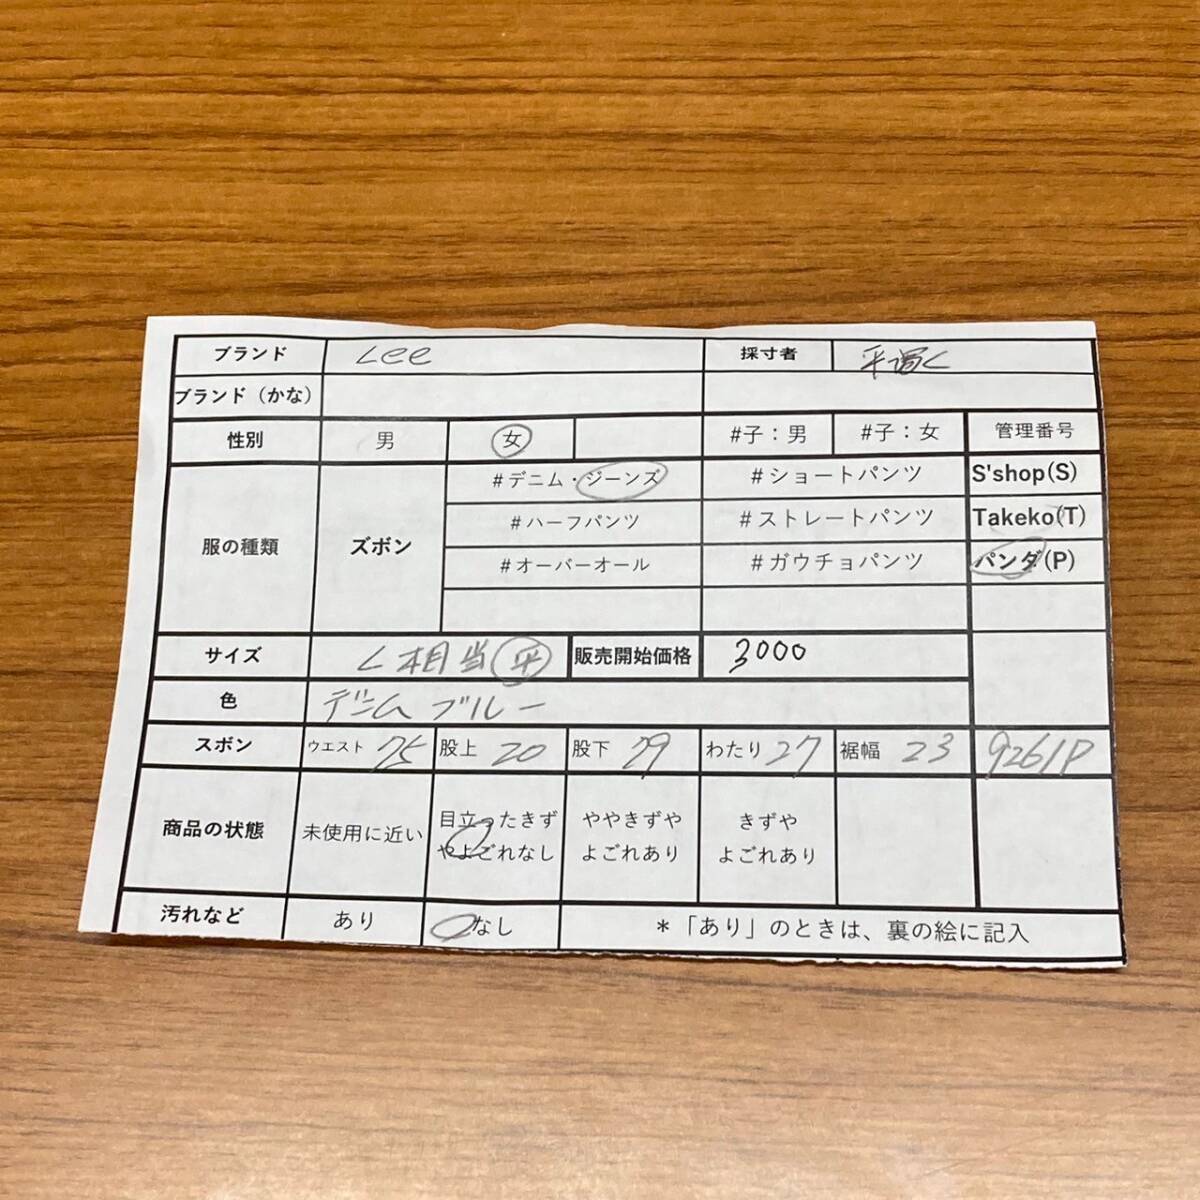 ブランド Lee 採寸者
ブランド（かな）
性別 男 女 #子：男 #子：女 管理番号
服の種類 ズボン #デニム・ジーンズ #ショートパンツ S'shop(S)
#ハーフパンツ #ストレートパンツ Takeko(T)
#オーバーオール #ガウチョパンツ パンダ(P)
サイズ L相当 平 販売開始価格 3000
色 デニムブルー
スボン ウエスト 75 股上 20 股下 79 わたり 27 裾幅 23 9261P
商品の状態 未使用に近い 目立ったきず ややきずや きずや
やよごれなし よごれあり よごれあり
汚れなど あり なし ＊「あり」のときは、裏の絵に記入